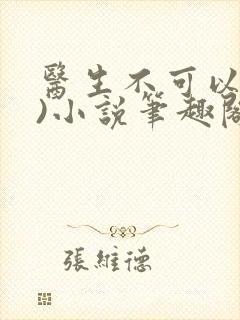 醫生不可以
)小說筆趣閣
張維德